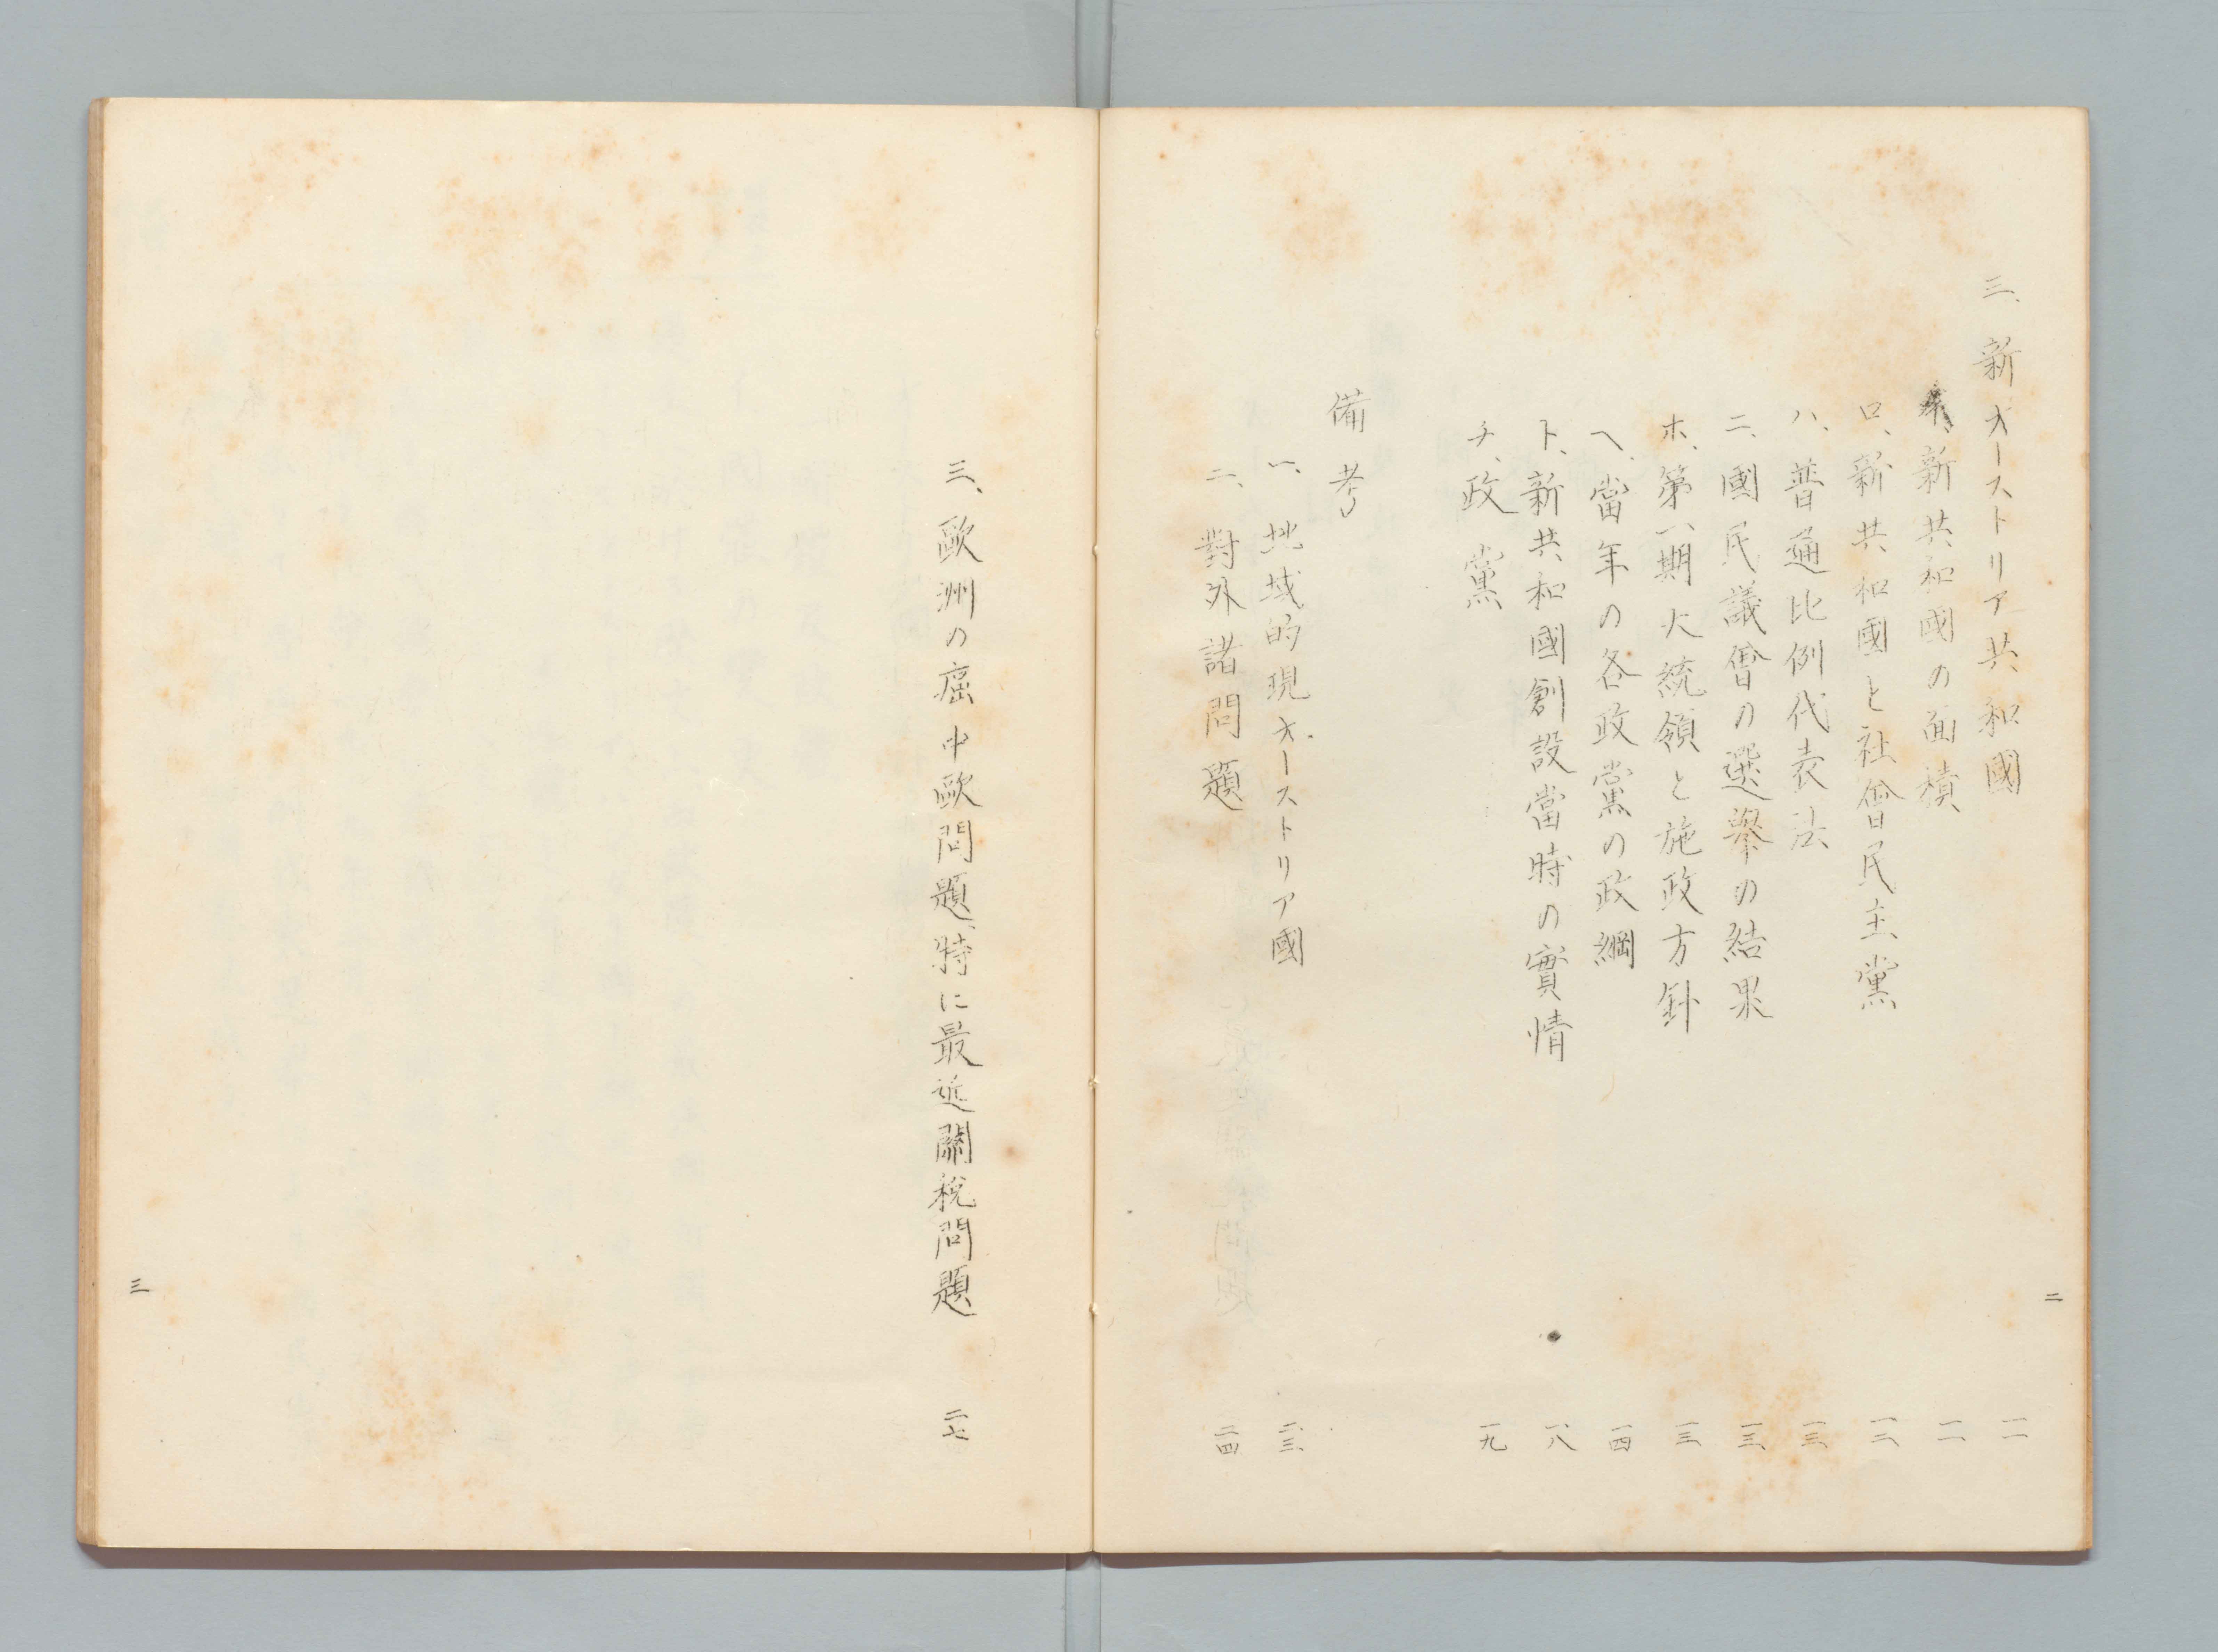 三、新オーストリア共和國 一一
新共和國の面積 一一
ロ、新共和國と社會民主黨 一二
ハ、普通比例代表法 一三
ニ、國民議會の選擧の結果 一三
ホ、第一期大統領と施政方針 一三
ヘ、當年の各政黨の政綱 一四
ト、新共和國創設當時の實情 一八
チ、政黨 一九
備考
一、地域的現オーストリア國 二三
二、對外諸問題 二四
二
三、歐洲の癌中歐問題、特に最近關稅問題 二七
三